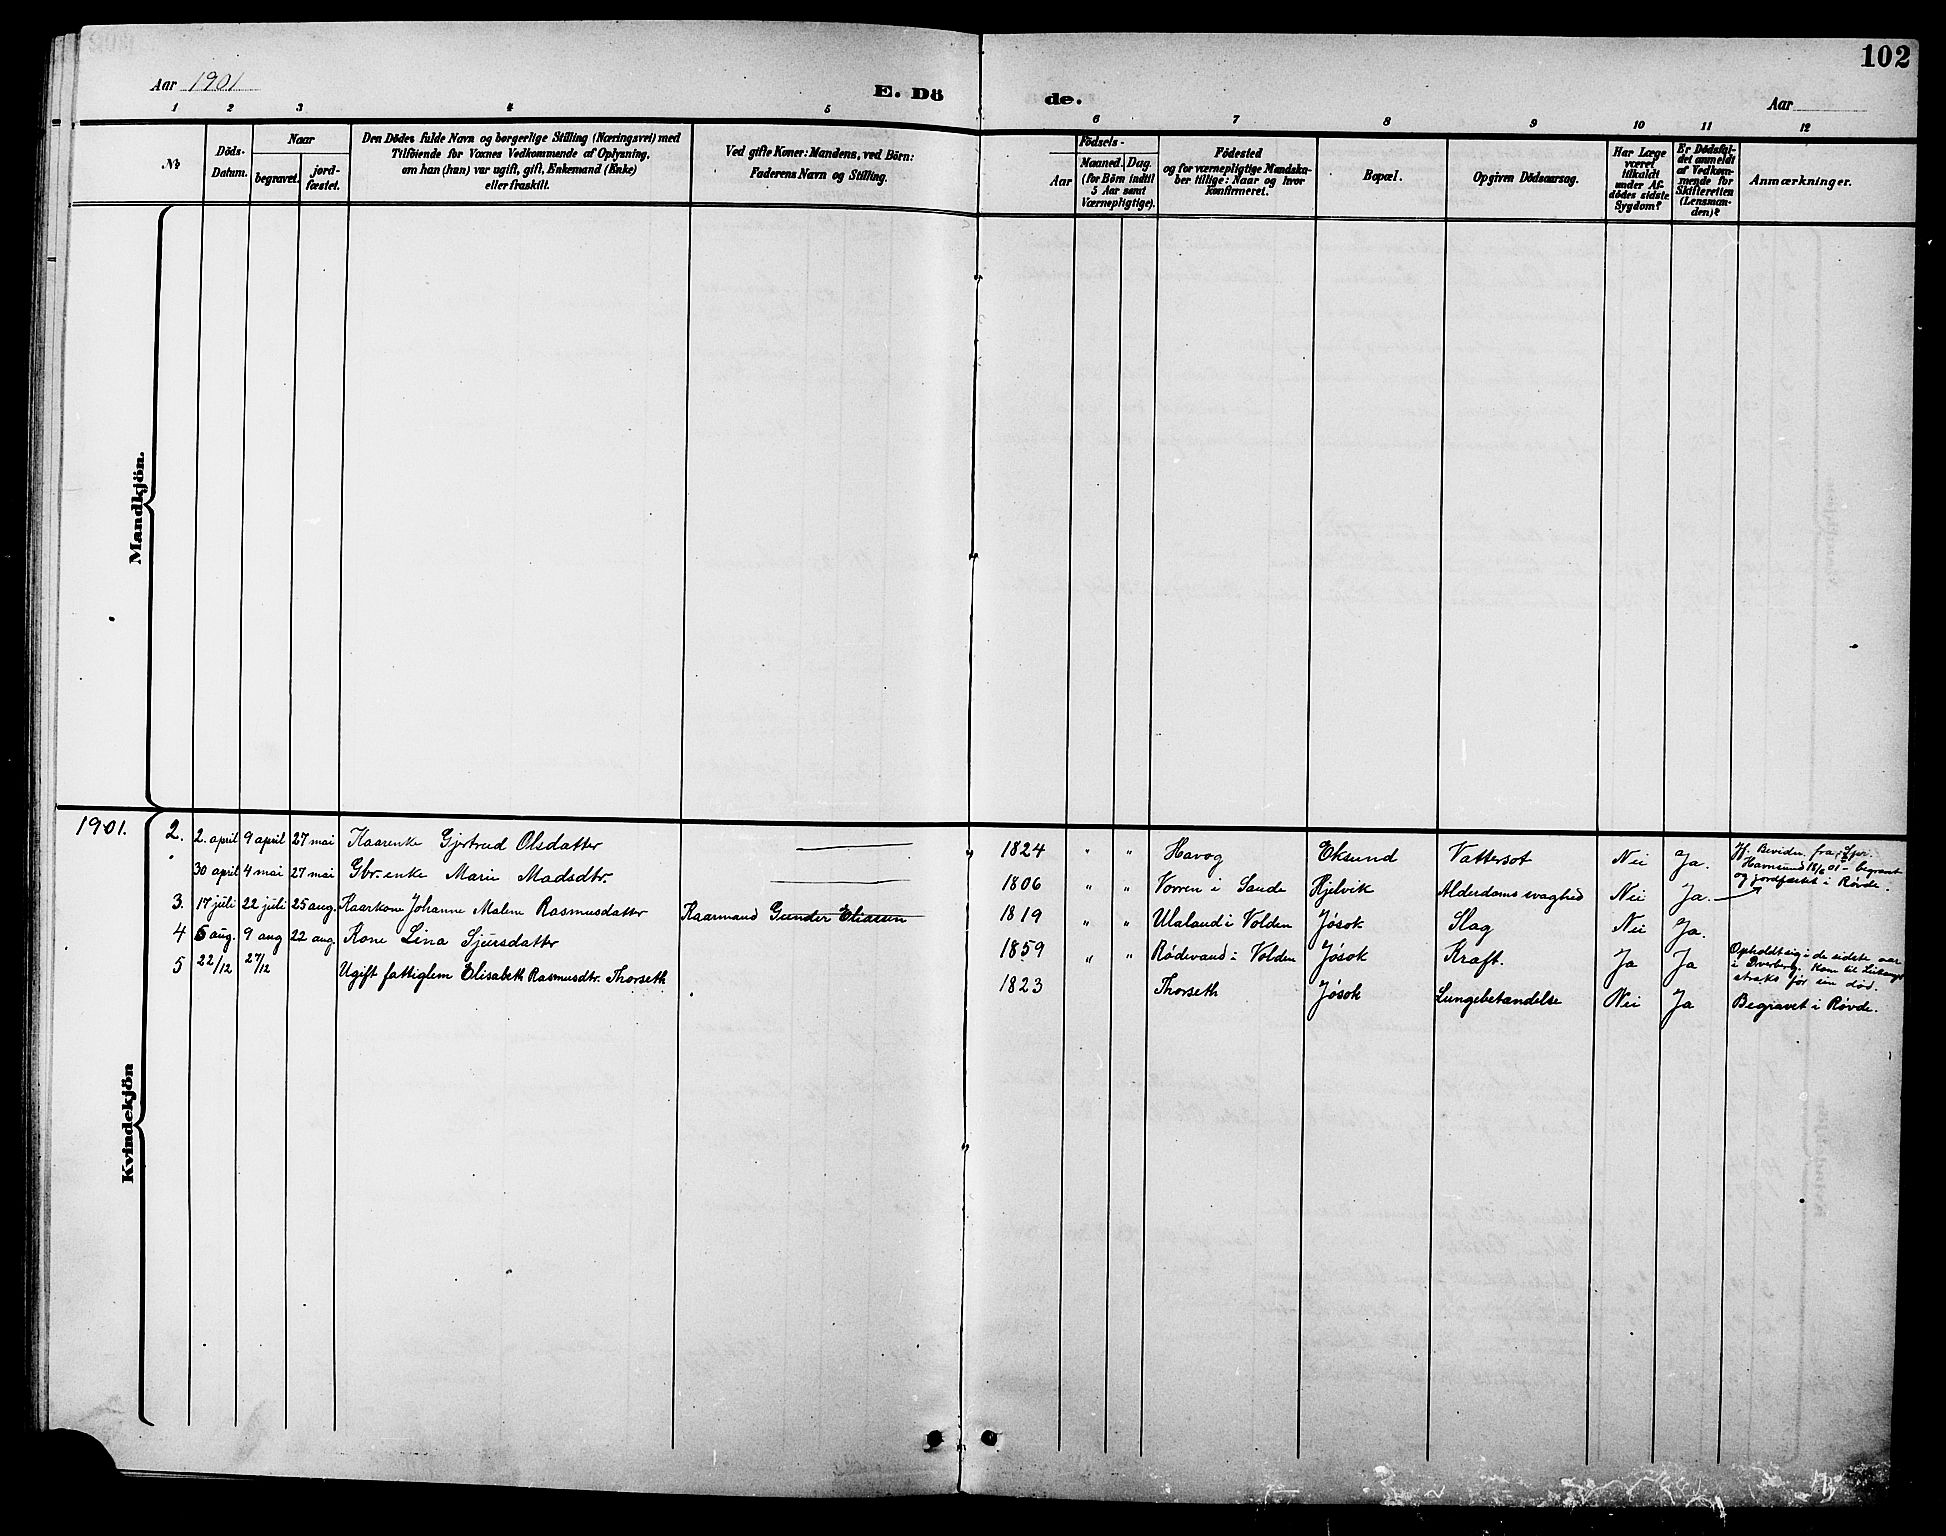 102
Aar 1901
E. Dö
de.
Aar
1 2 3 4 5 6 7 8 9 10 11 12
No
Döds-
Datum.
Naar
begravet.
jord-
fæstet.
Den Dödes fulde Navn og borgerlige Stilling (Næringsvei) med
Tilföiende for Voxnes Vedkommende af Oplysning,
om han (hun) var ugift, gift, Enkemand (Enke)
eller fraskilt.
Ved gifte Koner: Mandens, ved Börn:
Faderens Navn og Stilling.
Födsels-
Aar
Maaned. Dag.
(for Börn indtil
5 Aar samt
Værnepligtige).
Födested
og for værnepligtige Mandska-
ber tillige: Naar og hvor
konfirmeret.
Bopæl.
Opgiven Dödsaarsag.
Har Læge
været
tilkaldt
under Af-
dödes sidste
Sygdom?
Er Dödsfal-
det anmeldt
af Vedkom-
mende for
Skifteretten
(Lensman-
den)?
Anmærkninger.
Mandkjön.
Kvindekjön
1901.
2. 2. april 9 april 27 mai Kaarenke Gjertrud Olsdatter 1824 " " Havog Eksund Vattersot Nei Ja.
30 april 4 mai 27 mai Gbr. enke Marie Madsdtr. 1806 " " Vorren i Sande Hjelvik Alderdoms svaghed Nei Ja.
Havnsund 18/5 01 - begravet
og jordfæstet i Røvde.
3. 17 juli 22 juli 25 aug. Kaarkone Johanne Malene Rasmusdatter Kaarmand Gunder Eliasen 1819 " " Ulaland i Volden Jøsok Slag Nei Ja.
4 5 aug. 9 aug 22 aug. Kone Lina Sjursdatter 1859 " " Rødevand i Volden Jøsok Kræft. Ja Ja
Opholdt sig i de sidste aar
i Dverberg. Kom til
straks før sin død.
5 22/12 27/12 Ugift fattiglem Elisabeth Rasmusdtr. Thorseth 1823 Thorseth Jøsok Lungebetændelse Nei Ja Begravet i Røvde.